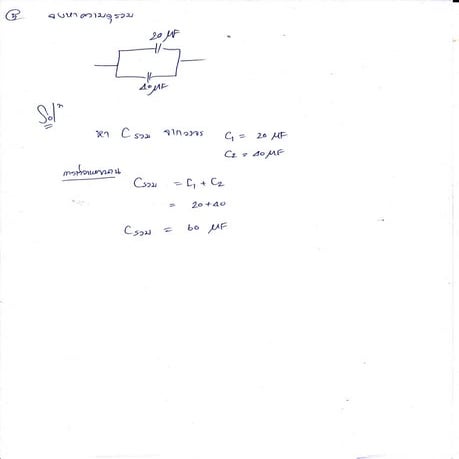 จงหาความจุรวม
20 μF
40 μF
Solⁿ
หา C รวม จากวงจร C₁ = 20 μF
C₂ = 40 μF
การต่อแบบขนาน
Cรวม = C₁ + C₂
= 20+40
Cรวม = 60 μF